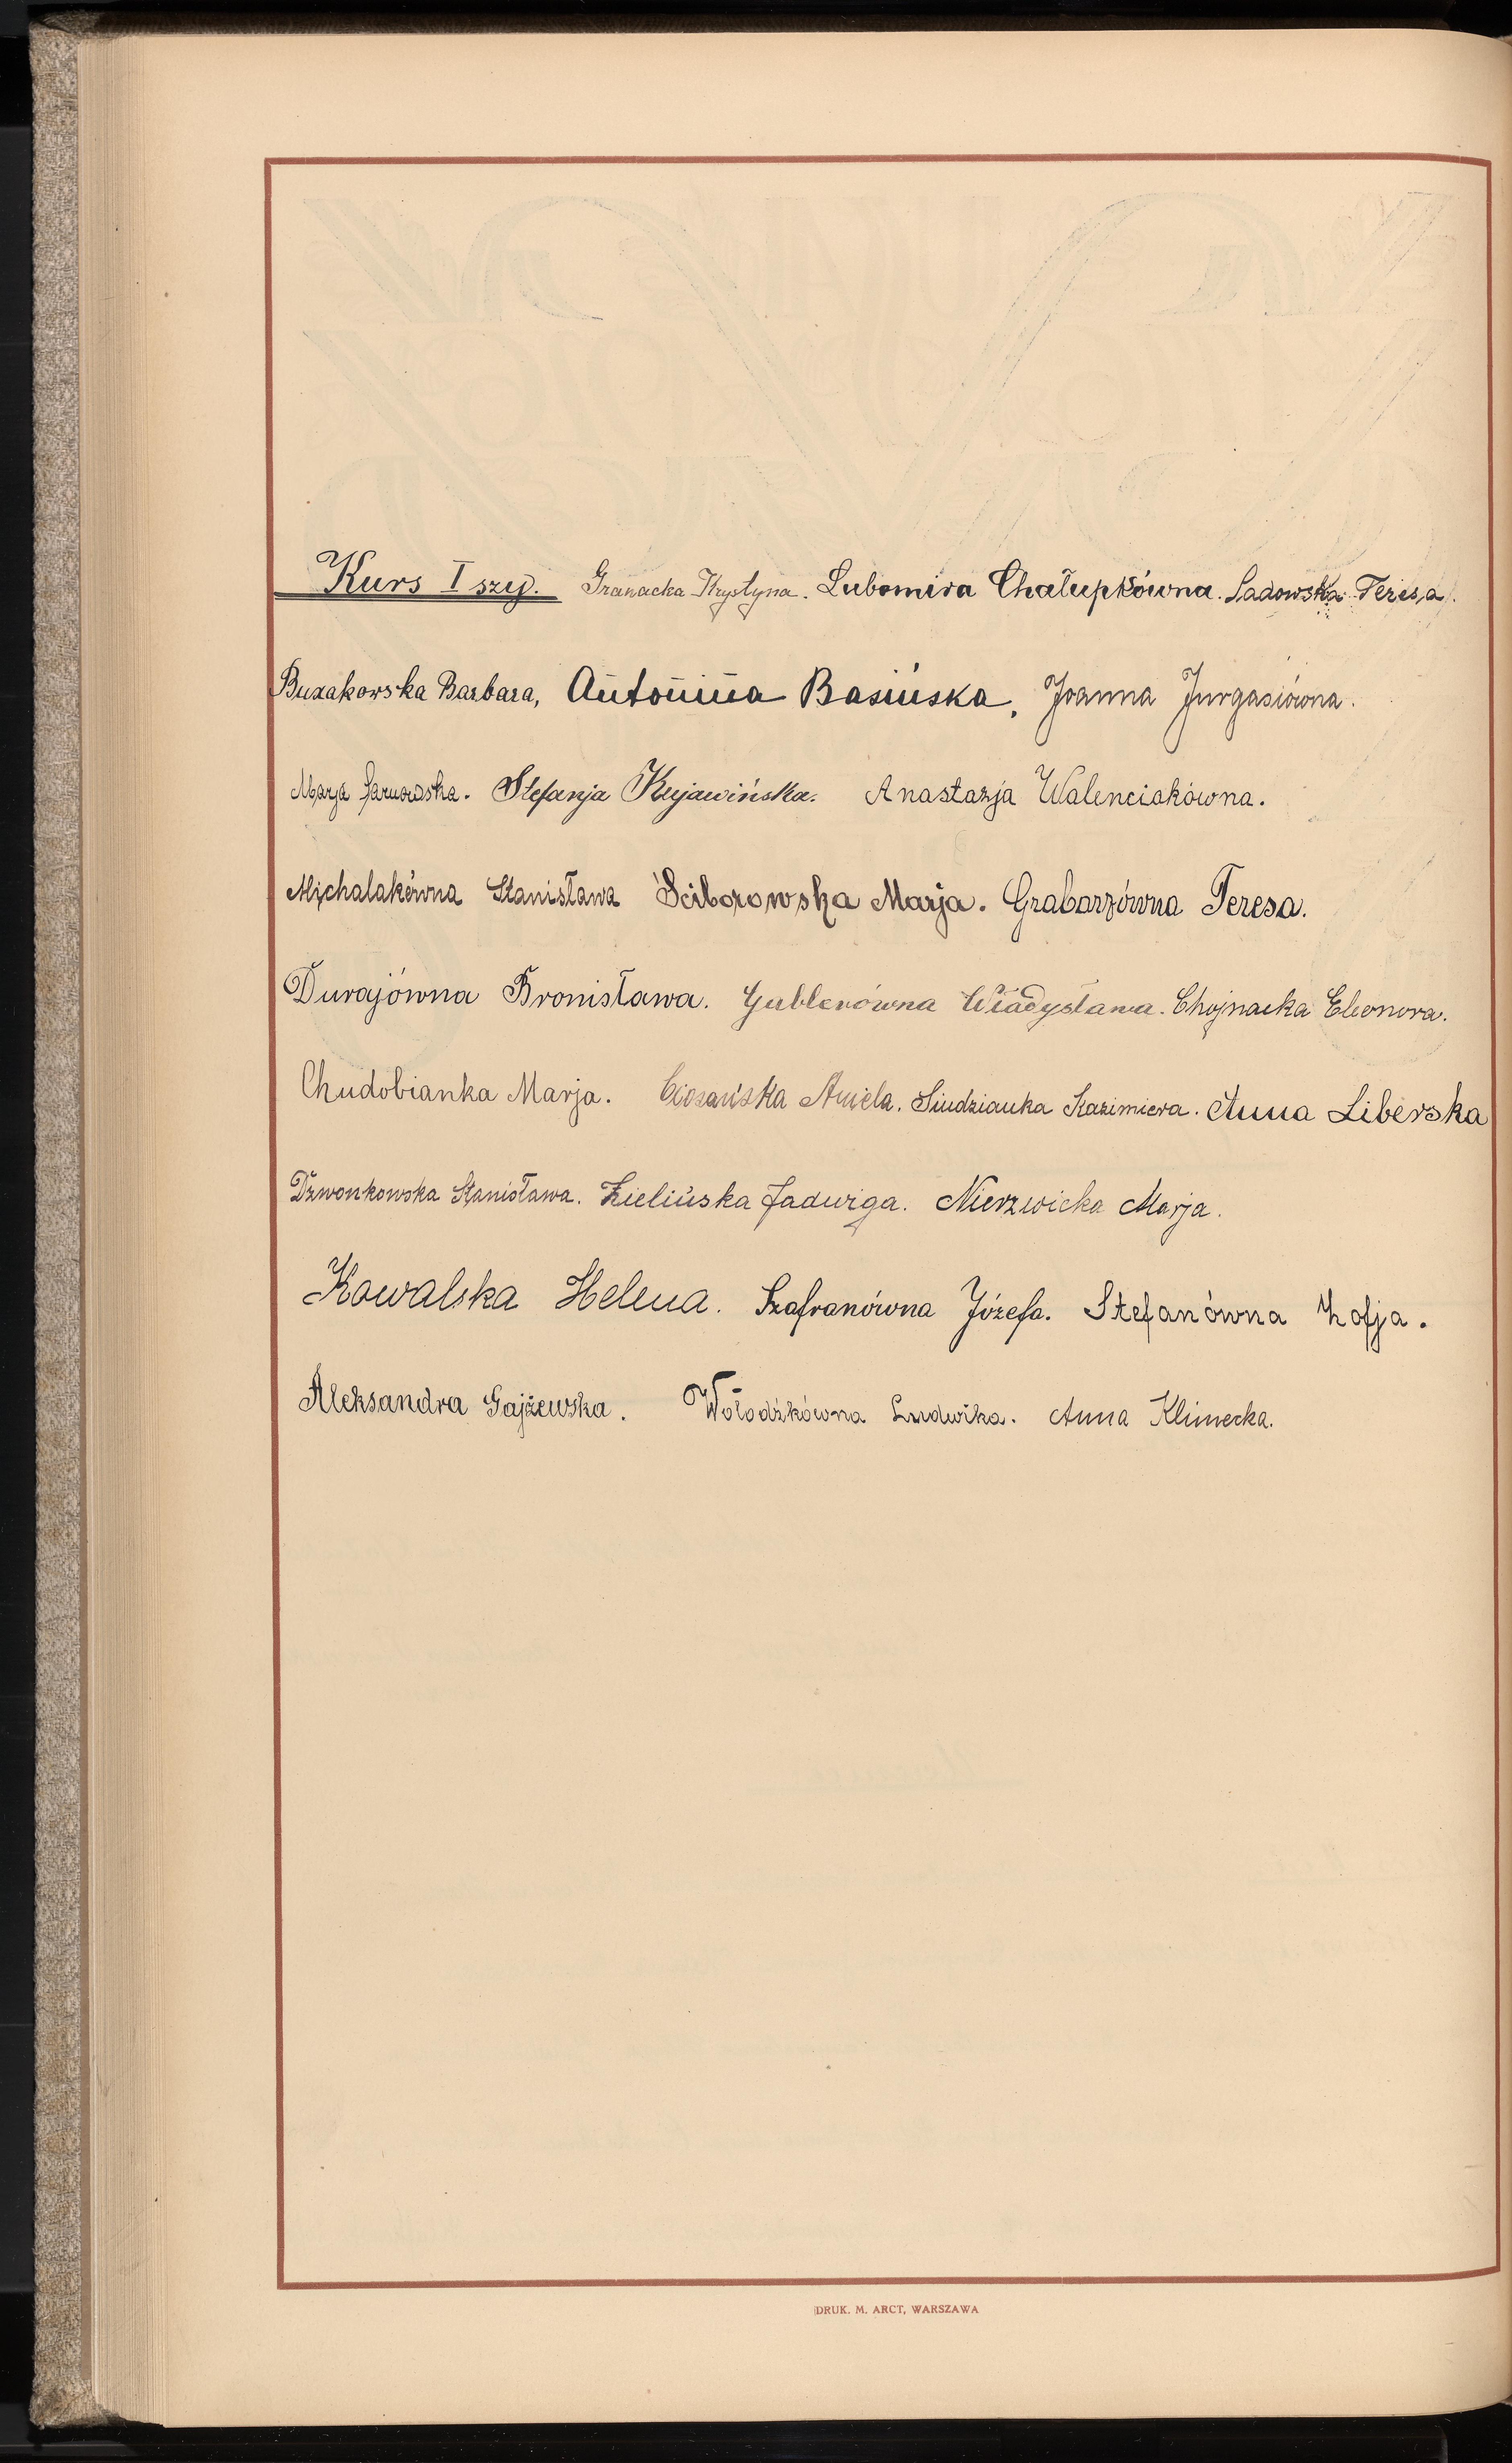 Kurs I szy. Granacka Krystyna. Lubomira Chałupkówna. Sadowska Teresa.
Buzakowska Barbara, Antonina Basińska, Joanna Jurgasiówna.
Marja Stefanja Kujawińska. Anastazja Walenciakówna.
Michalakówna Stanisława Ściborowska Marja. Grabarzówna Teresa.
Durajówna Bronisława. Gublerówna Władysława. Chojnacka Eleonora.
Chudobianka Marja. Ciosańska Aniela. Siudzianka Kazimiera. Anna Liberska
Dzwonkowska Stanisława. Zielińska Jadwiga. Nierzwicka Marja.
Kowalska Helena. Szafranówna Józefa. Stefanówna Zofja.
Aleksandra Gajżewska. Wołodźkówna Ludwika. Anna Klimecka.
DRUK. M. ARCT, WARSZAWA